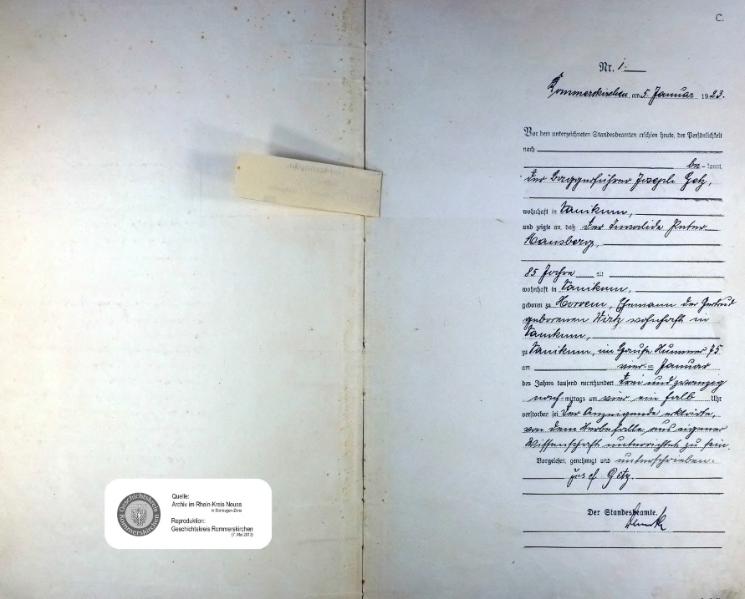 C.
Nr. 1.
Rommerskirchen am 5. Januar 1923.
Vor dem unterzeichneten Standesbeamten erschien heute, der Persönlichkeit
nach
be-kannt
der Baggerführer Joseph Götz,
wohnhaft in Vanikum,
und zeigte an, daß der Invalide Peter
Hansberg,
85 Jahre alt
wohnhaft in Vanikum,
geboren zu Horrem, Ehemann der Gertrud
geborenen Wirtz wohnhaft in
Vanikum,
zu Vanikum, im Hause Nummer 75
am vier= Januar
des Jahres tausend neunhundert drei und zwanzig
nach-mittags um vier ein halb Uhr
verstorben sei. Der Anzeigende erklärte,
von dem Sterbefalle, aus eigener
Wissenschaft unterrichtet zu sein.
Vorgelesen, genehmigt und unterschrieben.
Josef Götz.
Der Standesbeamte.
Quelle:
Archiv im Rhein-Kreis Neuss
in Dormagen-Zons
Reproduktion:
Geschichtskreis Rommerskirchen